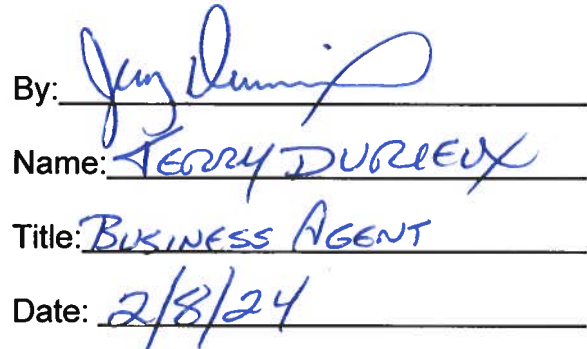 By:
Name: JERRY DURIEUX
Title: BUSINESS AGENT
Date: 2/8/24